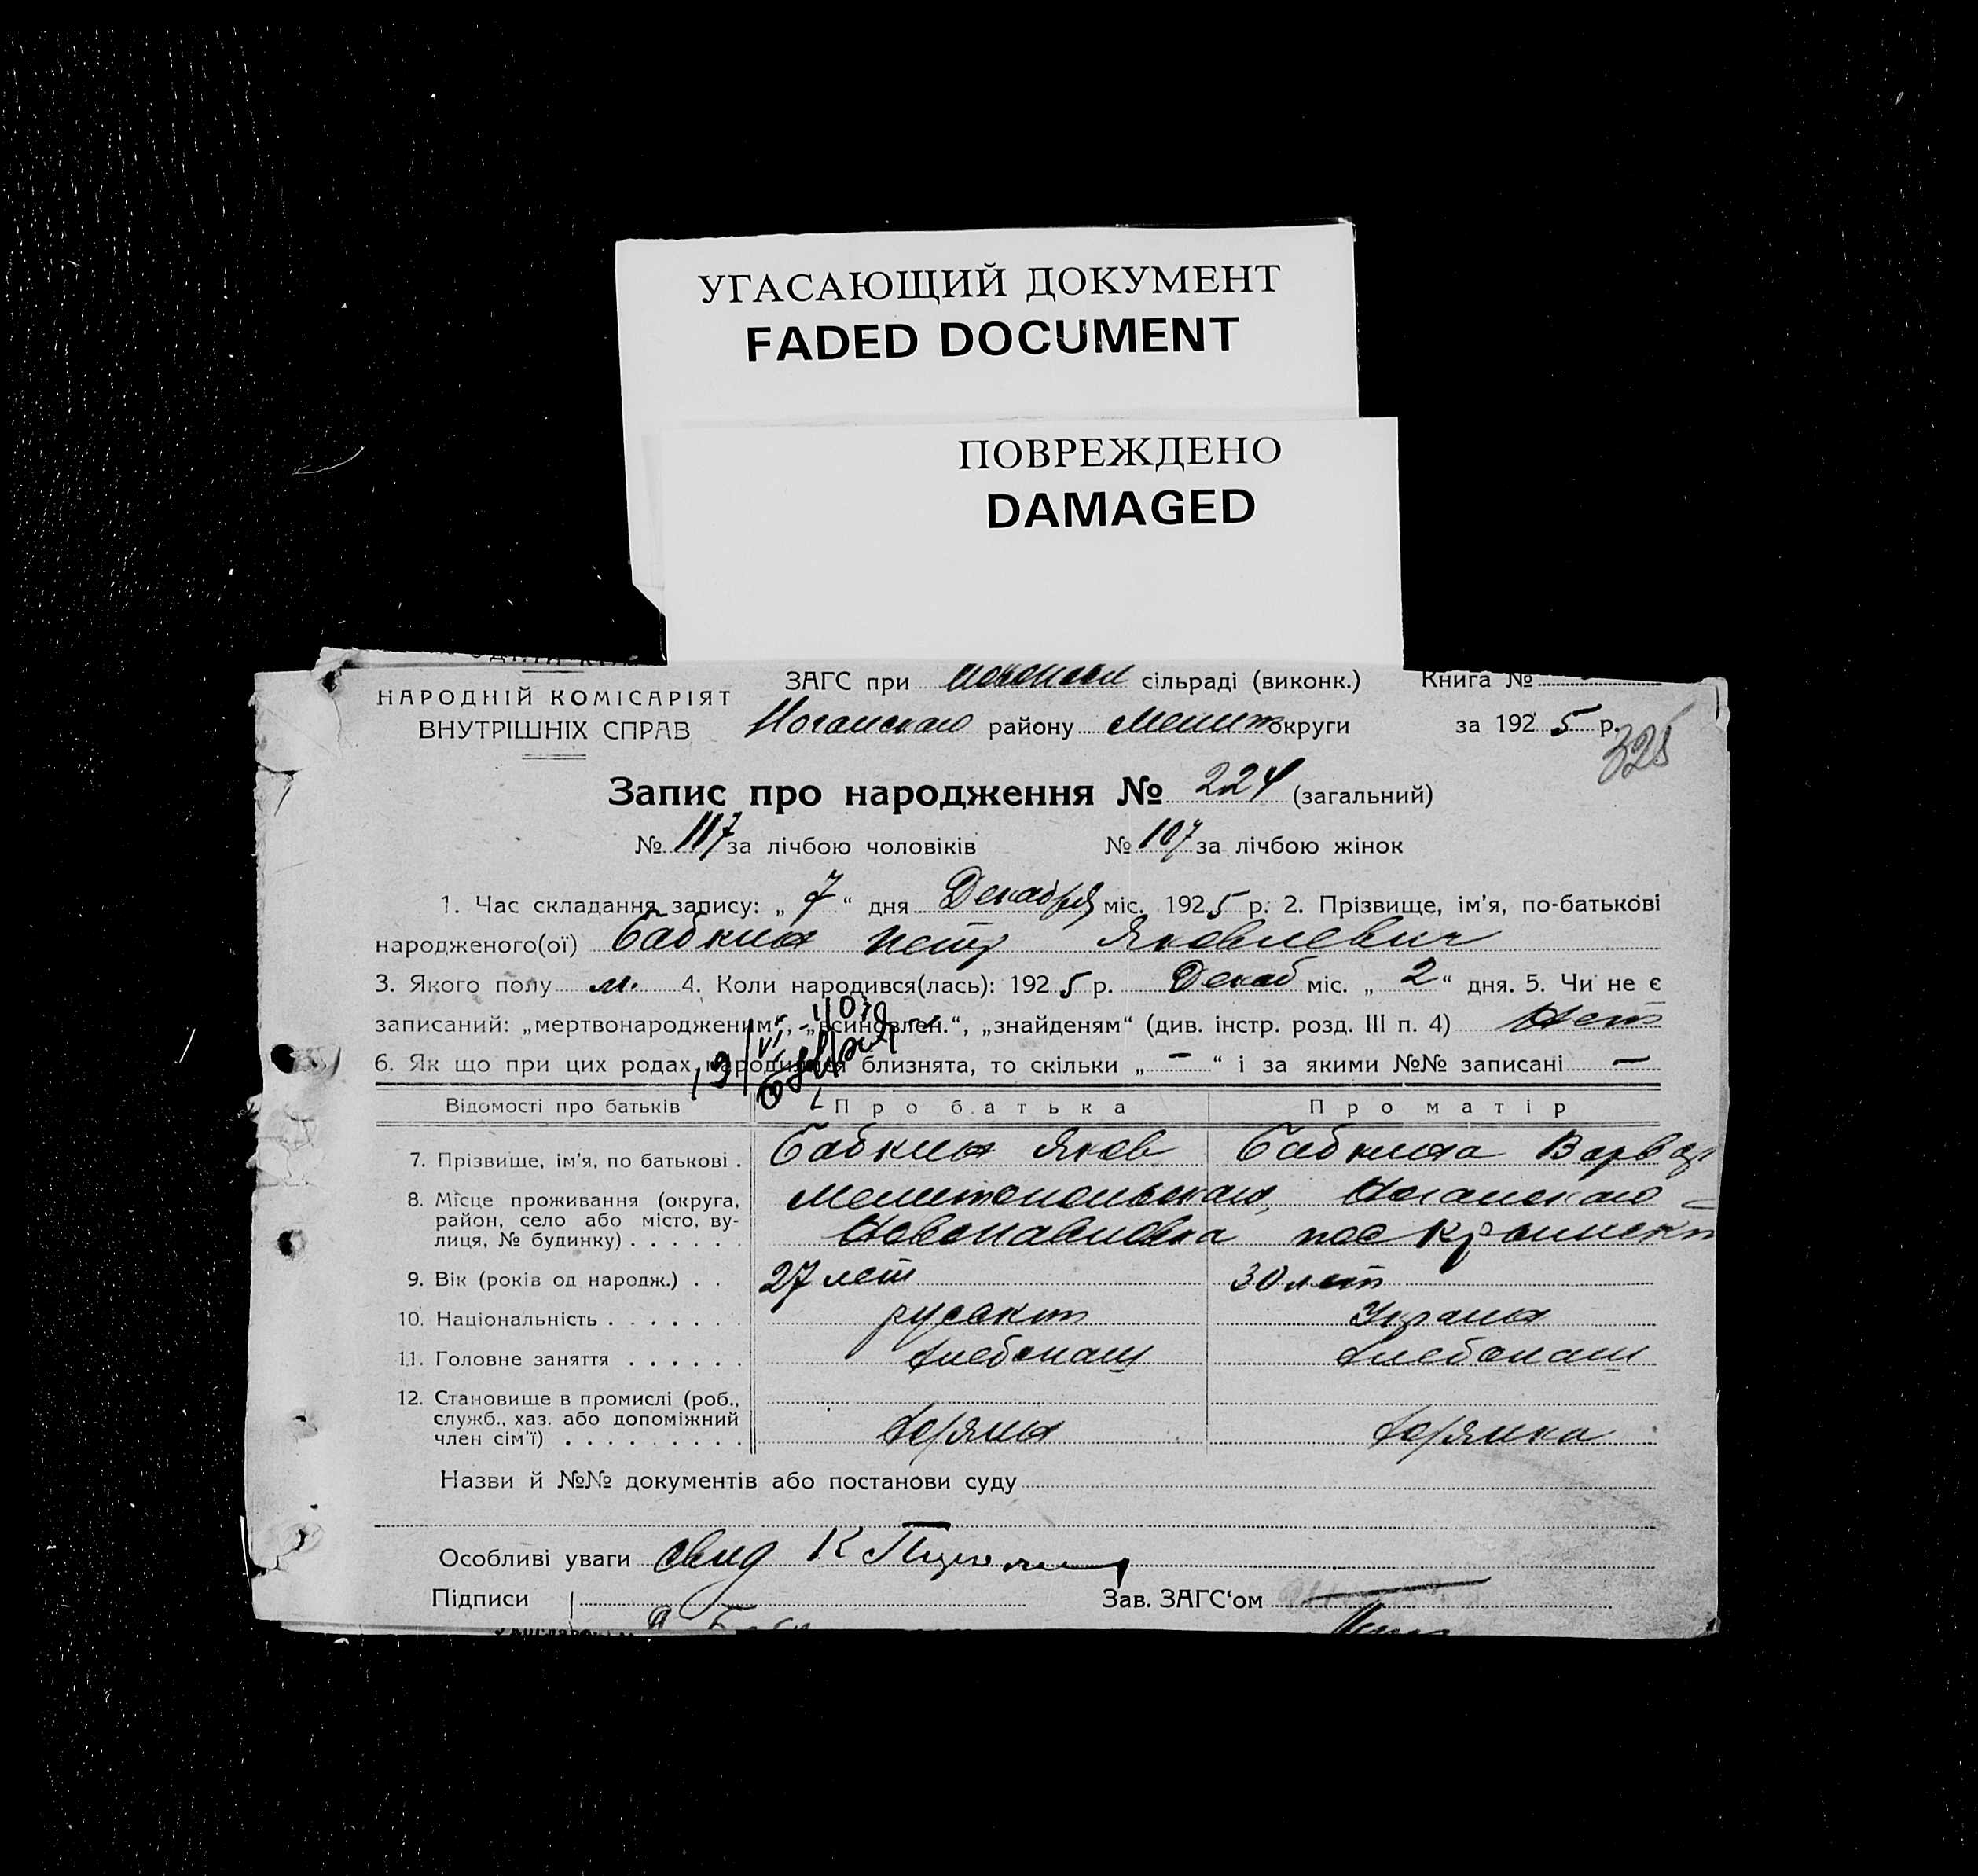 УГАСАЮЩИЙ ДОКУМЕНТ
FADED DOCUMENT
ПОВРЕЖДЕНО
DAMAGED
НАРОДНІЙ КОМІСАРІЯТ
ВНУТРІШНІХ СПРАВ
ЗАГС при сільраді (виконк.) Книга №
Ногайского району Мелит округи за 1925 р.
325
Запис про народження № 224 (загальний)
№ 117 за лічбою чоловіків № 107 за лічбою жінок
1. Час складання запису: „7“ дня Декабря міс. 1925 р. 2. Прізвище, ім’я, по-батькові
народженого(ої) Бабкин Петр Яковлевич
3. Якого полу м. 4. Коли народився(лась): 1925 р. Декаб міс. „2“ дня. 5. Чи не є
записаний: „мертвонародженим“, „всиновлен.“, „знайденям“ (див. інстр. розд. III п. 4) Нет
6. Як що при цих родах народилися близнята, то скільки „—“ і за якими №№ записані —
Відомості про батьків Про батька Про матір
7. Прізвище, ім’я, по батькові . Бабкин Яков Бабкина Варвар
8. Місце проживання (округа, Мелитопольская, Ногайского
район, село або місто, ву-
лиця, № будинку) . . . . . Новопавловка пос
9. Вік (років од народж.) . . 27 лет 30 лет
10. Національність . . . . . . . русский Украин
11. Головне заняття . . . . . . хлебопаш хлебопаш
12. Становище в промислі (роб.,
служб., хаз. або допоміжний
член сім’ї) . . . . . . . . .
Назви й №№ документів або постанови суду
Особливі уваги
Підписи Зав. ЗАГС‘ом